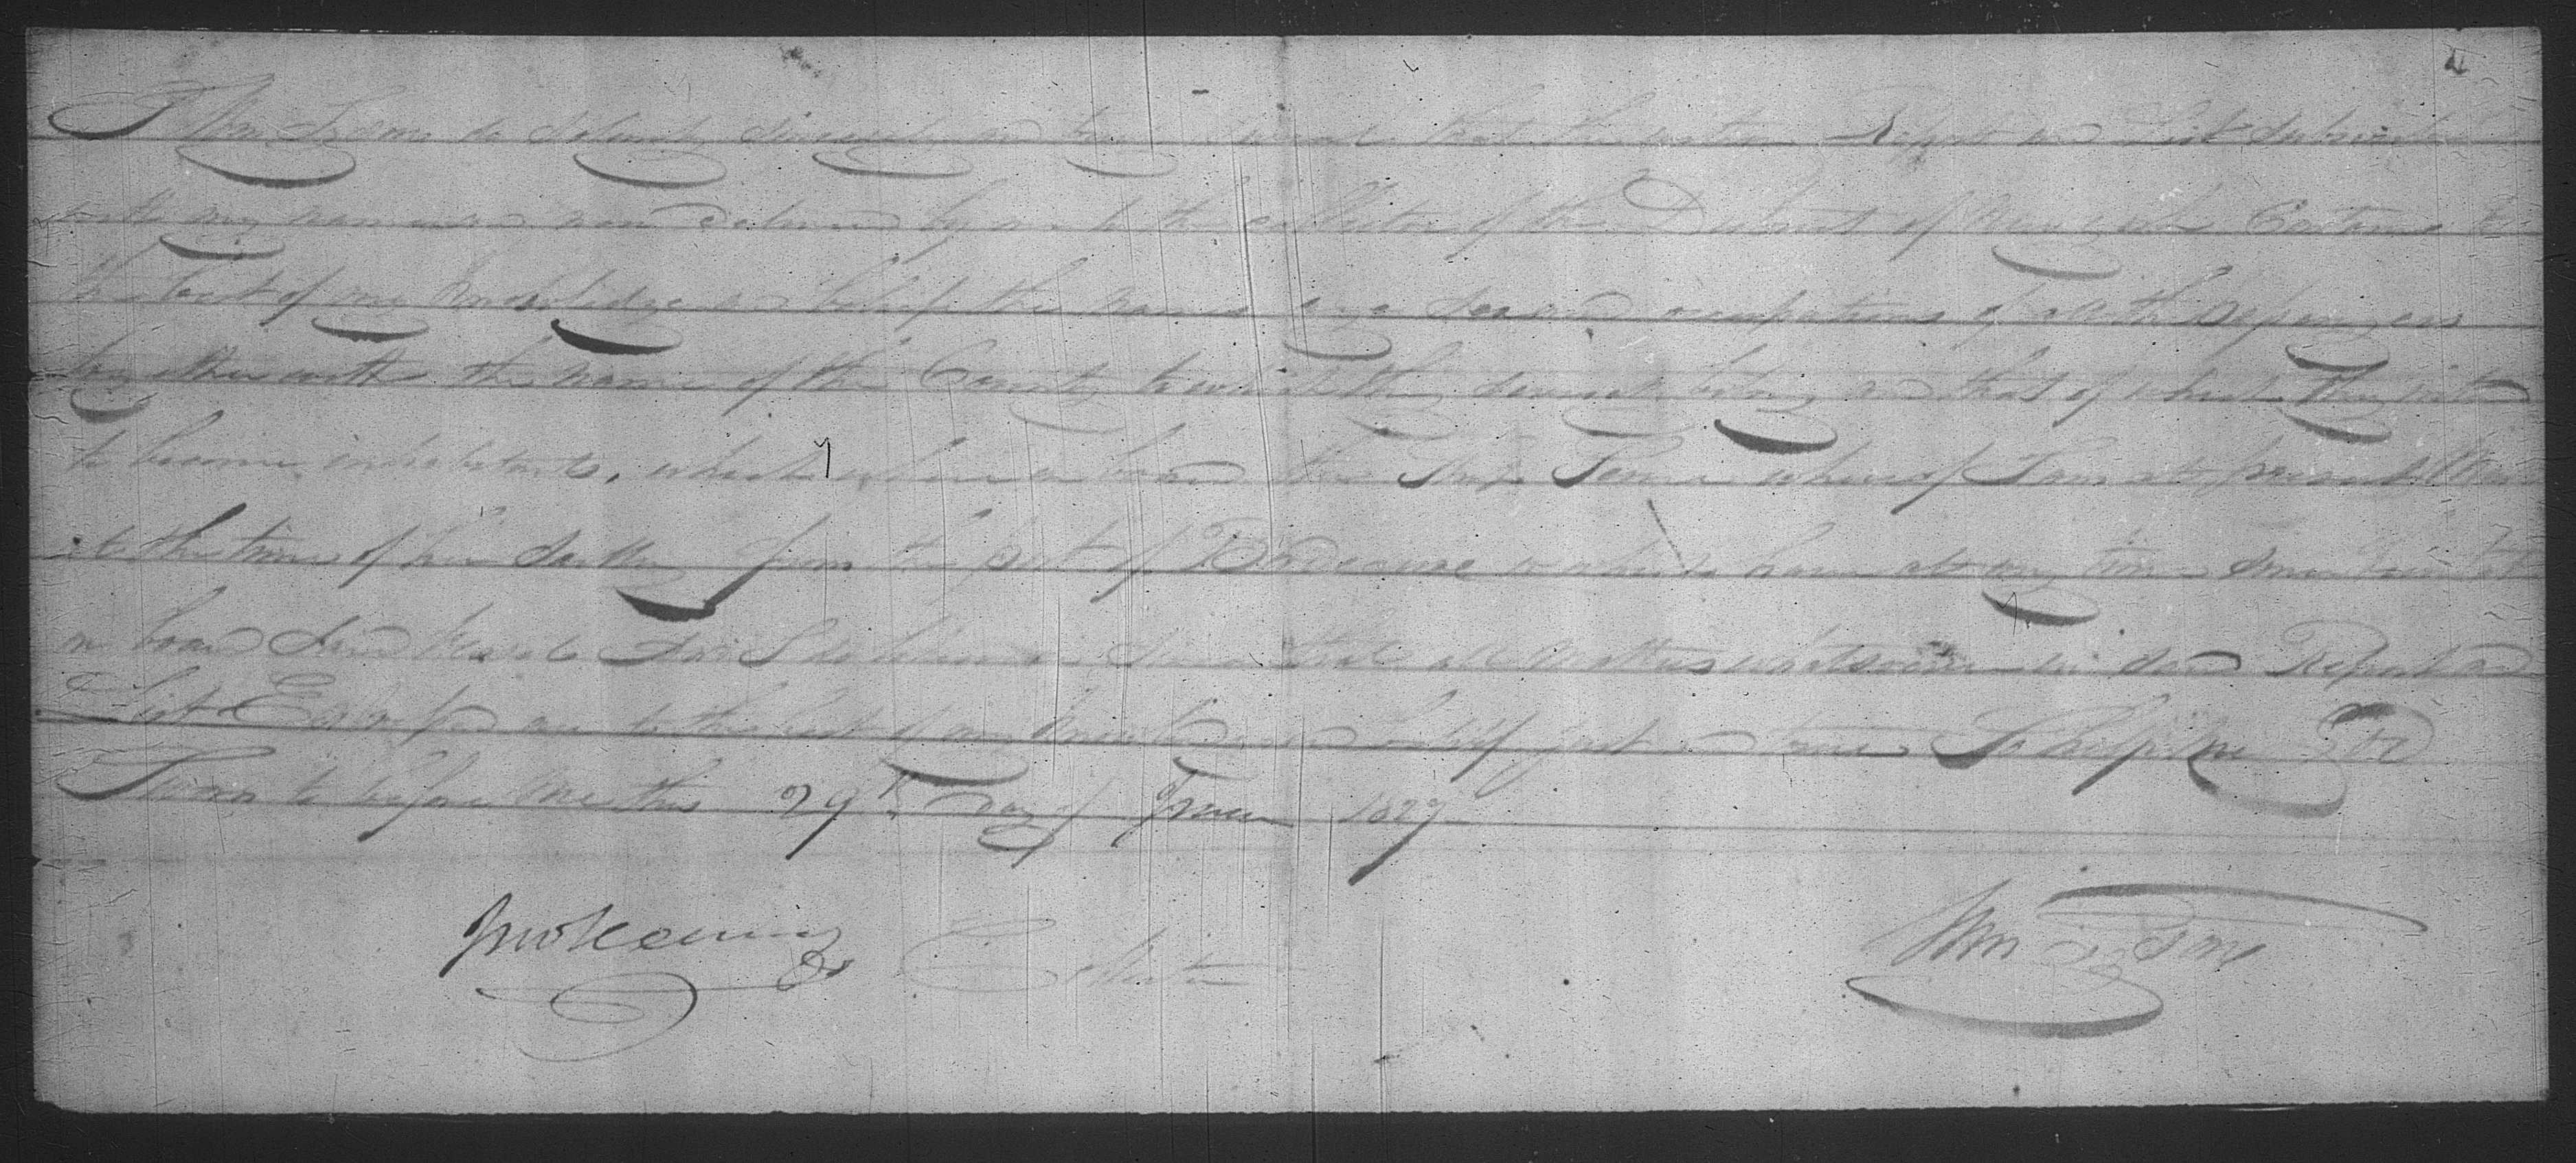 I Wm do solemnly sincerely and truly Swear that the within Report and List subscribed
with my name and now delivered by me to the collector of the District of New York Contains to
the best of my Knowledge and belief the names age sex and occupations of all the Passengers
together with the name of the County to which they severally belong and that of which they intend
to become inhabitants, which were on board the Ship whereof I am at present Master
at the time of her sailing from the port of Bordeaux or which have at any time since been taken
on board Said Vessel And I do likewise Swear that all Matters whatsoever in said Report and
List Expressed are to the best of my Knowledge and belief just and true So help Me God
Sworn to before Me this 29th day of 1827
Collector Wm